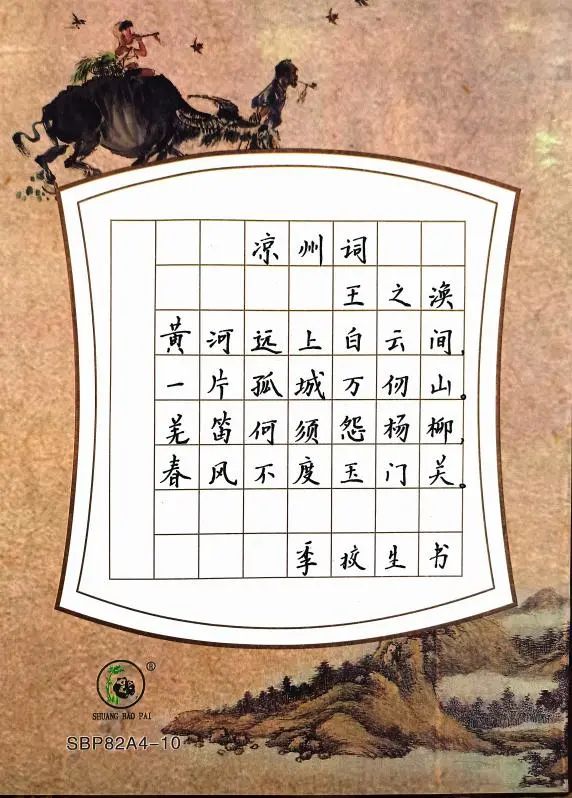 凉州词
王之涣
黄河远上白云间,
一片孤城万仞山。
羌笛何须怨杨柳,
春风不度玉门关。
季 生书
®
SHUANG BAO PAI
SBP82A4-10